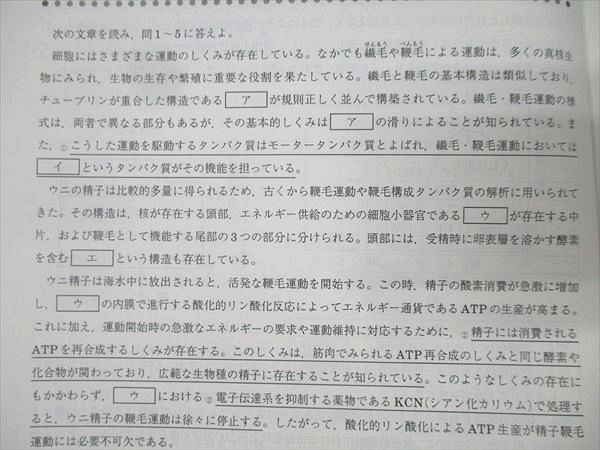 次の文章を読み，問1～5に答えよ。
細胞にはさまざまな運動のしくみが存在している。なかでも繊毛や鞭毛による運動は，多くの真核生
物にみられ，生物の生存や繁殖に重要な役割を果たしている。繊毛と鞭毛の基本構造は類似しており，
チューブリンが重合した構造である ア が規則正しく並んで構築されている。繊毛・鞭毛運動の様
式は，両者で異なる部分もあるが，その基本的しくみは ア の滑りによることが知られている。ま
た，①こうした運動を駆動するタンパク質はモータータンパク質とよばれ，繊毛・鞭毛運動においては
イ というタンパク質がその機能を担っている。
ウニの精子は比較的多量に得られるため，古くから鞭毛運動や鞭毛構成タンパク質の解析に用いられ
てきた。その構造は，核が存在する頭部，エネルギー供給のための細胞小器官である ウ が存在する中
片，および鞭毛として機能する尾部の3つの部分に分けられる。頭部には，受精時に卵表層を溶かす酵素
を含む エ という構造も存在している。
ウニ精子は海水中に放出されると，活発な鞭毛運動を開始する。この時，精子の酸素消費が急激に増加
し， ウ の内膜で進行する酸化的リン酸化反応によってエネルギー通貨であるATPの生産が高まる。
これに加え，運動開始時の急激なエネルギーの要求や運動維持に対応するために，②精子には消費される
ATPを再合成するしくみが存在する。このしくみは，筋肉でみられるATP再合成のしくみと同じ酵素や
化合物が関わっており，広範な生物種の精子に存在することが知られている。このようなしくみの存在に
もかかわらず， ウ における③電子伝達系を抑制する薬物であるKCN(シアン化カリウム)で処理す
ると，ウニ精子の鞭毛運動は徐々に停止する。したがって，酸化的リン酸化によるATP生産が精子鞭毛
運動には必要不可欠である。